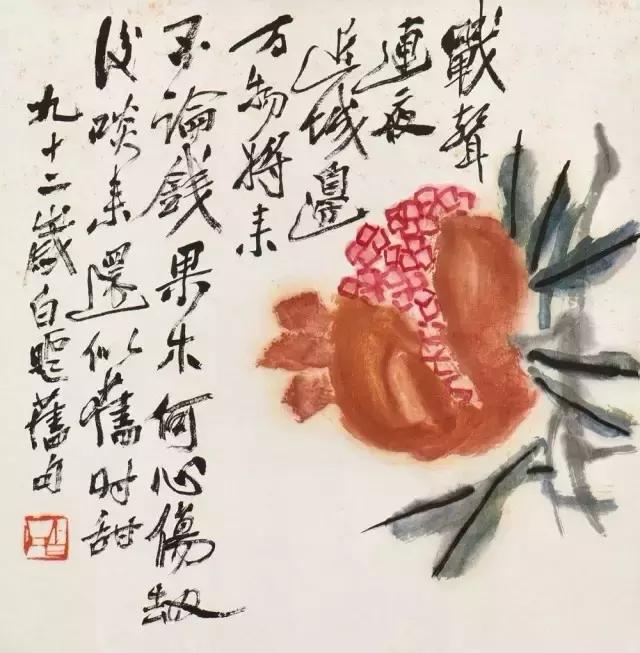 戰聲
連夜
近城邊
万物將来
不論錢果木何心傷劫
後啖来還似舊時甜
九十二歲白石舊句